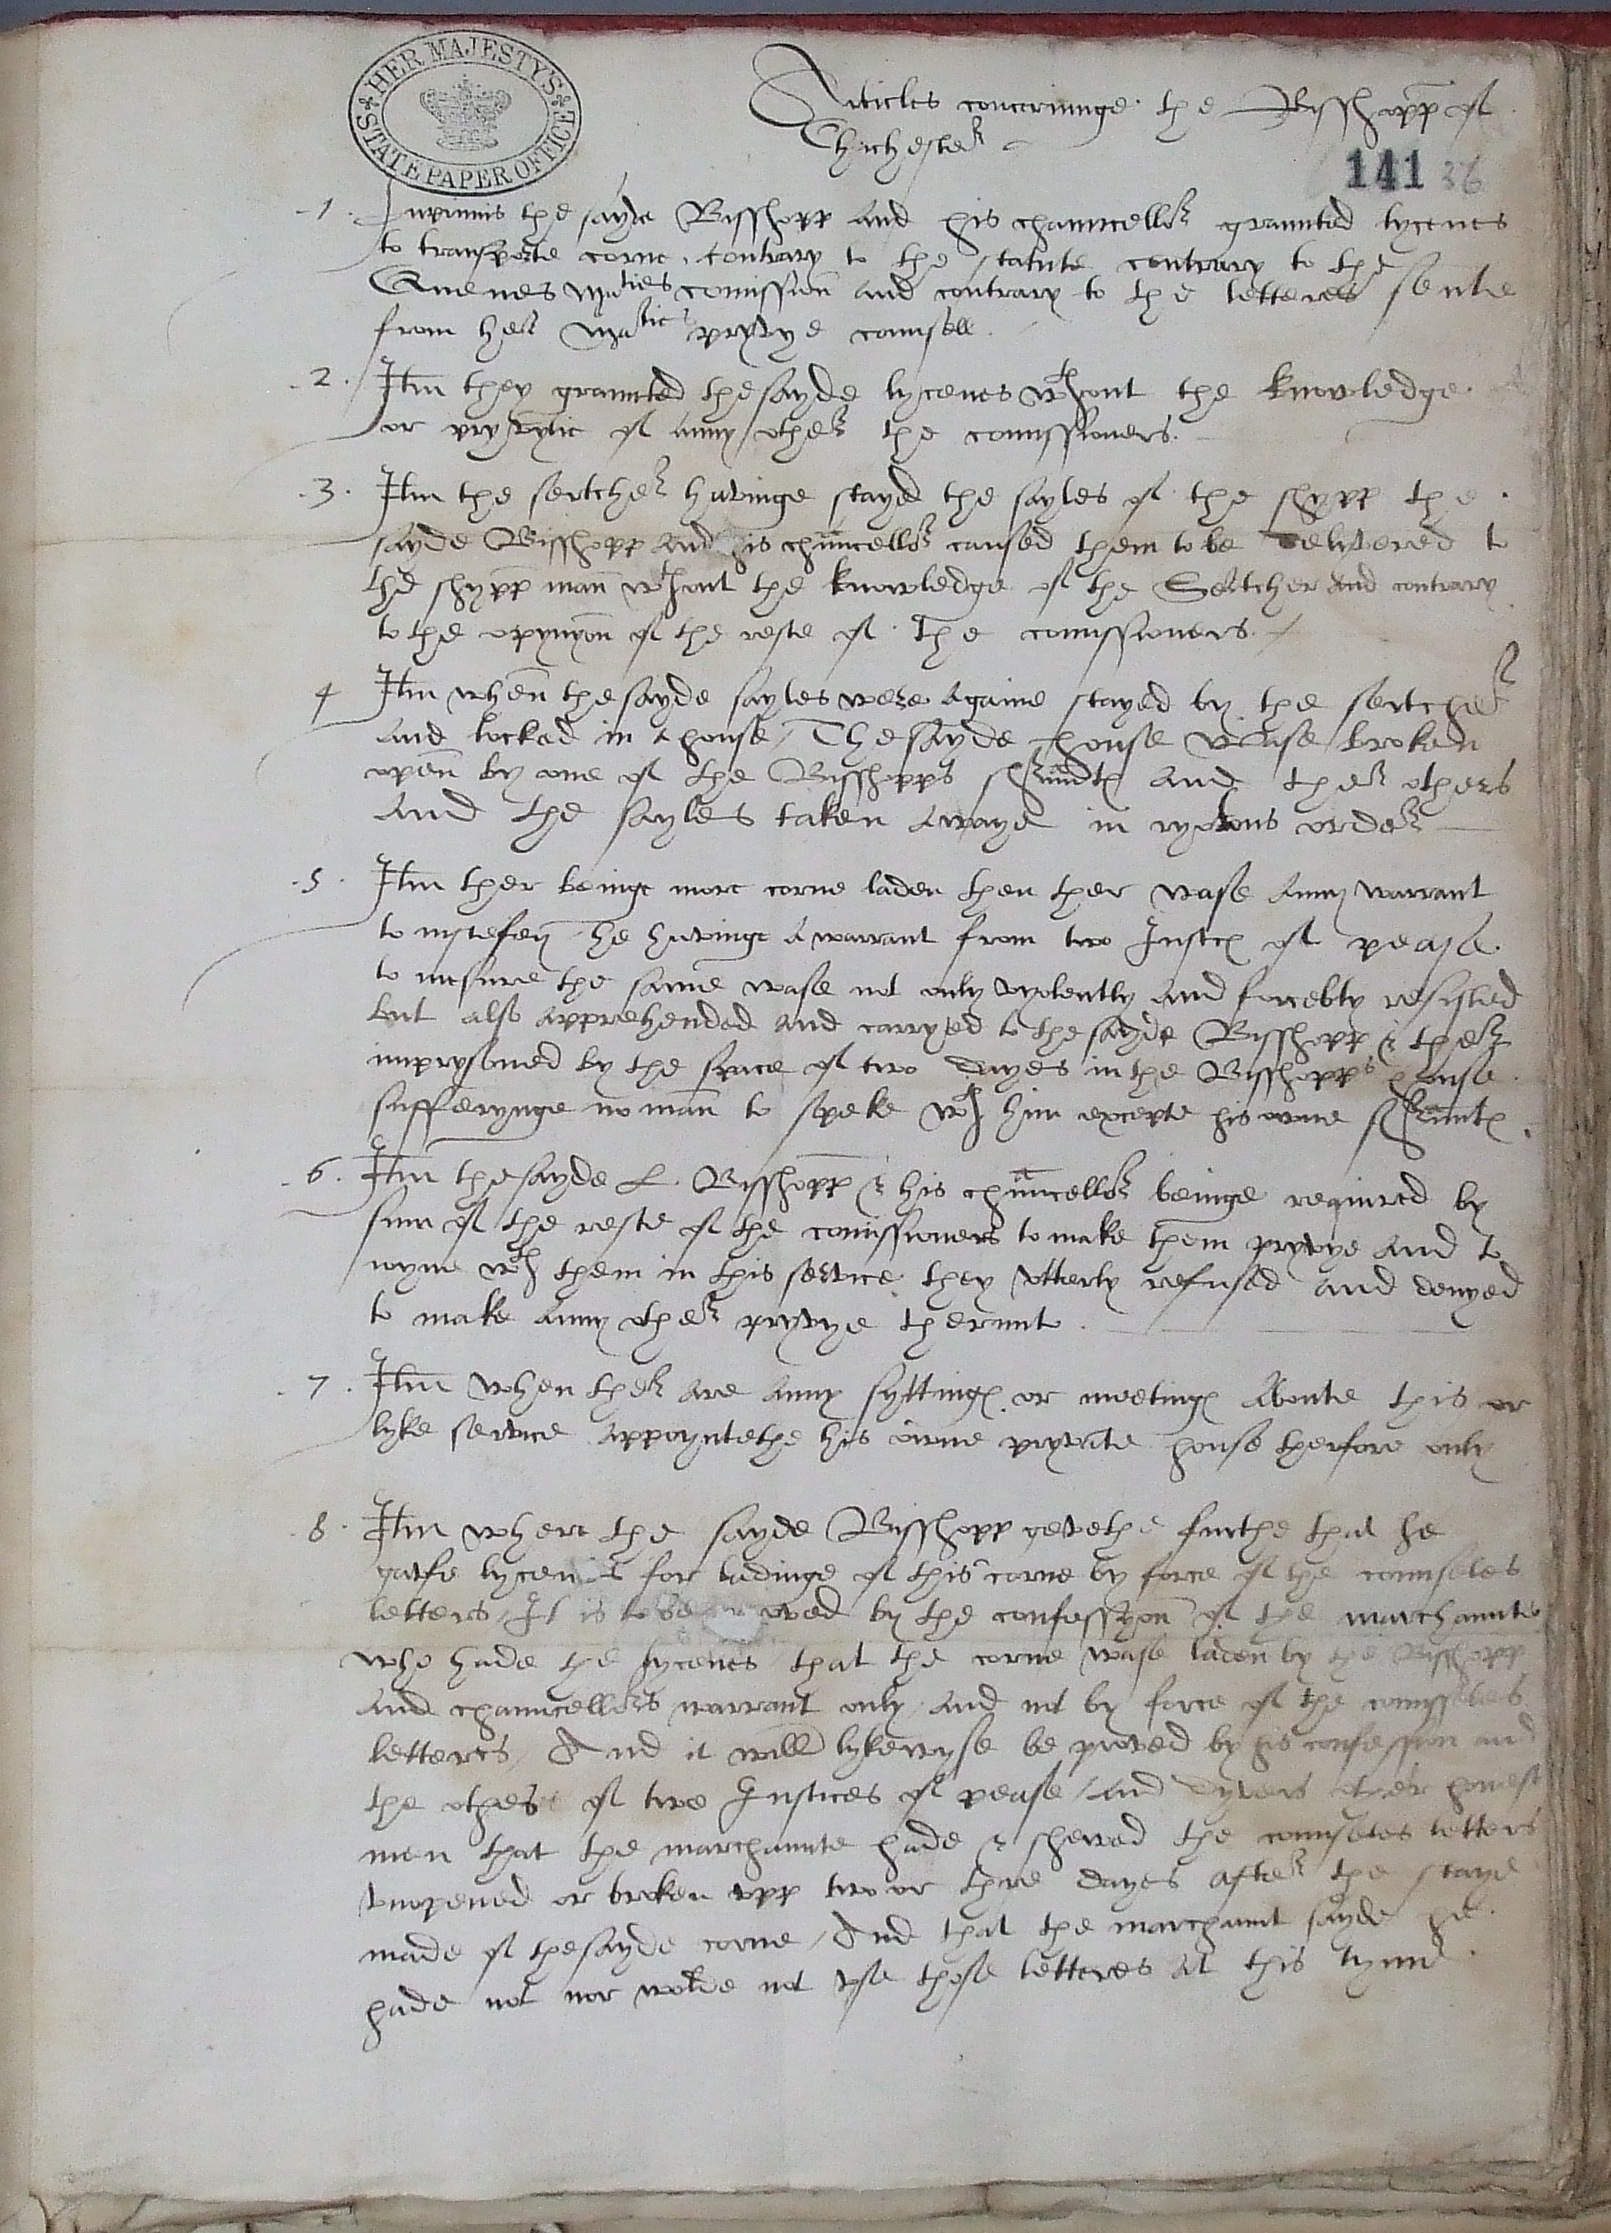 HER MAJESTY'S STATE PAPER OFFICE
Articles concerninge the Bisshopp of
Chichester
141 36
1. Inprimis the sayde Bisshopp and his chauncellor graunted lycenes
to transporte corne, contrary to the statute contrary to the
Quenes Maties comission and contrary to the letteres sente
from her Maties pryvye counsell.
2. Itm they graunted the sayde lycenes wthout the knowledge
or pryvytie of anny other the comissioners.
3. Itm the sertcher havinge stayed the sayles of the shypp the
sayde Bisshopp and his chauncellor caused them to be delyvered to
the shypp man wthout the knowledge of the Sertcher and contrary
to the opynyon of the reste of the comissioners.
4 Itm when the sayde sayles were againe stayed by the sertcher
and locked in a house / The sayde house wase broken
open by one of the Bisshopps servaunts and ther others
and the sayles taken awaye in ryotous order
5. Itm ther beinge more corne laden then ther wase anny warrant
to he havinge a warrant from two Justces of pease
to mesure the same wase not only vyolently and forcebly resisted
but also apprehended and carryed to the sayde Bisshopp & ther
imprysoned by the space of two dayes in the Bisshopps house
sufferynge no man to speke wth him excepte his owne servaunts.
6. Itm the sayde L. Bisshopp & his chauncellor beinge required by
sum of the reste of the comissioners to make them pryvye and to
ioyne wth them in this service they vtterly refused and denyed
to make anny other pryvye therunto.
7. Itm when ther are anny syttings or meetings aboute this or
lyke service appoyntethe his owne pryvate house therfore only
8. Itm where the sayde Bisshopp gevethe furthe that he
gaffe lycenes for ladinge of this corne by force of the counseles
letters / It is to be proved by the confessyon of the marchaunte
who hade the lycenes that the corne wase laden by the Bisshopp
and chauncellors warrant only and not by force of the counseles
letteres / And it will lykewyse be proved by his confession and
the othes of two Justices of pease / and dyvers other honest
men that the marchaunte hade & shewed the counseles letters
vnopened or broken vpp two or thre dayes after the staye
made of the sayde corne / And that the marchaunt sayde he
hade not nor wolde not vse those letteres at this tyme.